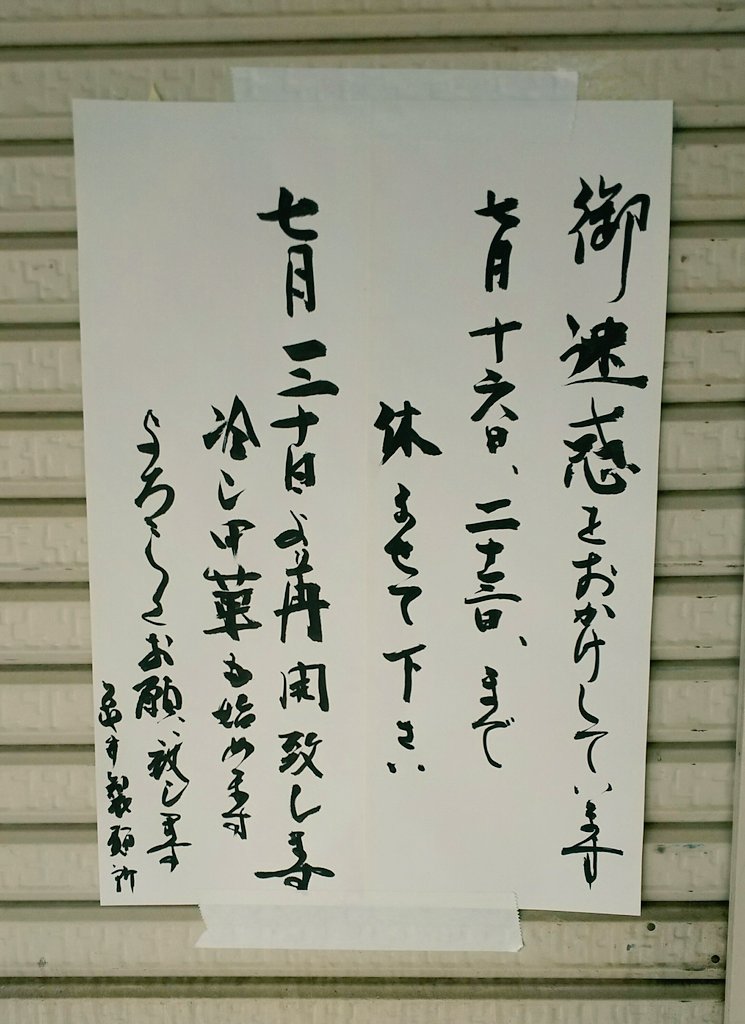 御迷惑をおかけしています
七月十六日、二十三日、まで
休ませて下さい
七月三十日より再開致します
冷し中華も始めます
よろしくお願い致します
亀井製麺所